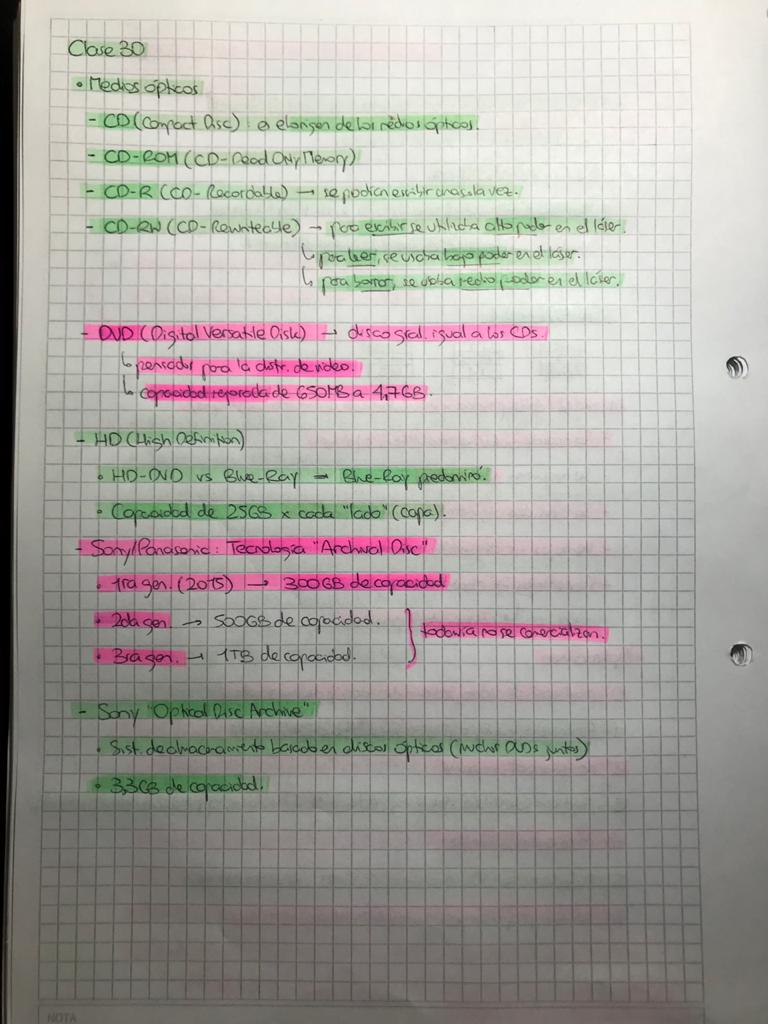 Clase 30
• Medios ópticos
- CD (Compact Disc): o el origen de los medios ópticos.
- CD-ROM (CD-Read Only Memory)
- CD-R (CD-Recordable) → se podían escribir una sola vez.
- CD-RW (CD-Rewriteable) → para escribir se utilizaba alto poder en el láser.
↳ para leer, se usaba bajo poder en el láser.
↳ para borrar, se usaba medio poder en el láser.
- DVD (Digital Versatile Disk) → disco gral. igual a los CDs.
↳ pensador para la distr. de video.
↳ capacidad mejorada de 650MB a 4,7GB.
- HD (High Definition)
• HD-DVD vs Blue-Ray → Blue-Ray predominó.
• Capacidad de 25GB x cada "lado" (capa).
- Sony/Panasonic: Tecnología "Archival Disc"
• 1ra gen. (2015) → 300GB de capacidad
• 2da gen. → 500GB de capacidad.
• 3ra gen. → 1TB de capacidad.
} todavía no se comercializan.
- Sony "Optical Disc Archive"
• Sist. de almacenamiento basado en discos ópticos (muchos DVDs juntos)
• 3,3GB de capacidad.
NOTA